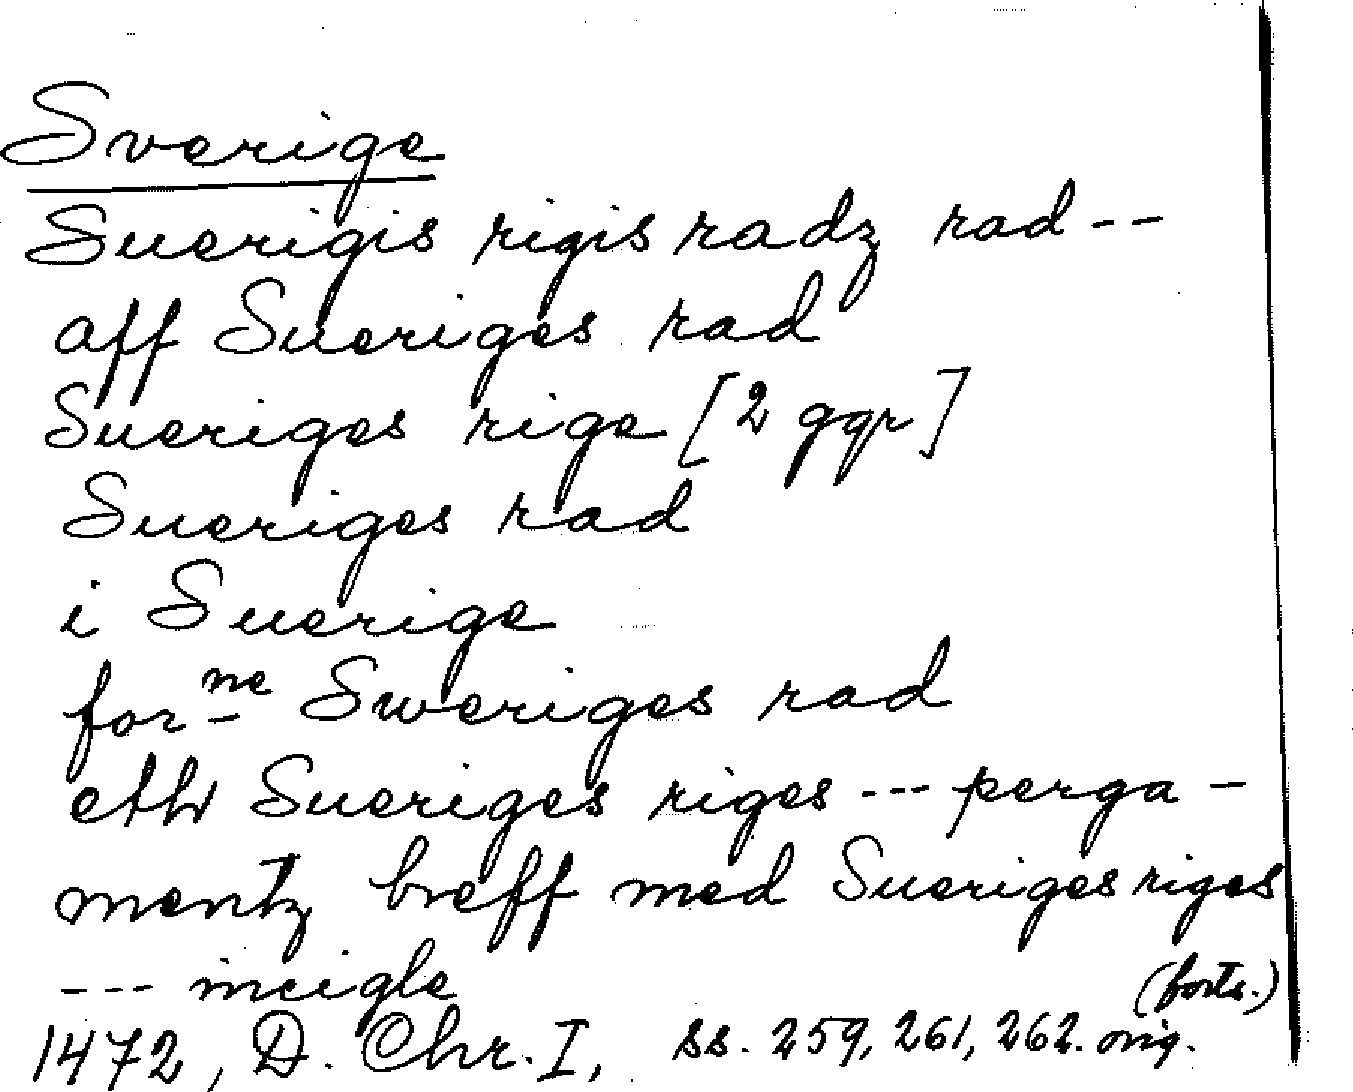 Sverige
Suerigis rigis radz rad --
aff Sueriges rad
Sueriges rige [2 ggr]
Sueriges rad
i Suerige
for-ne Sweriges rad
eth Sueriges riges --- perga-
mentz breff med Sueriges riges
--- incigle
(forts.)
1472, D. Chr. I, ss. 259, 261, 262. orig.